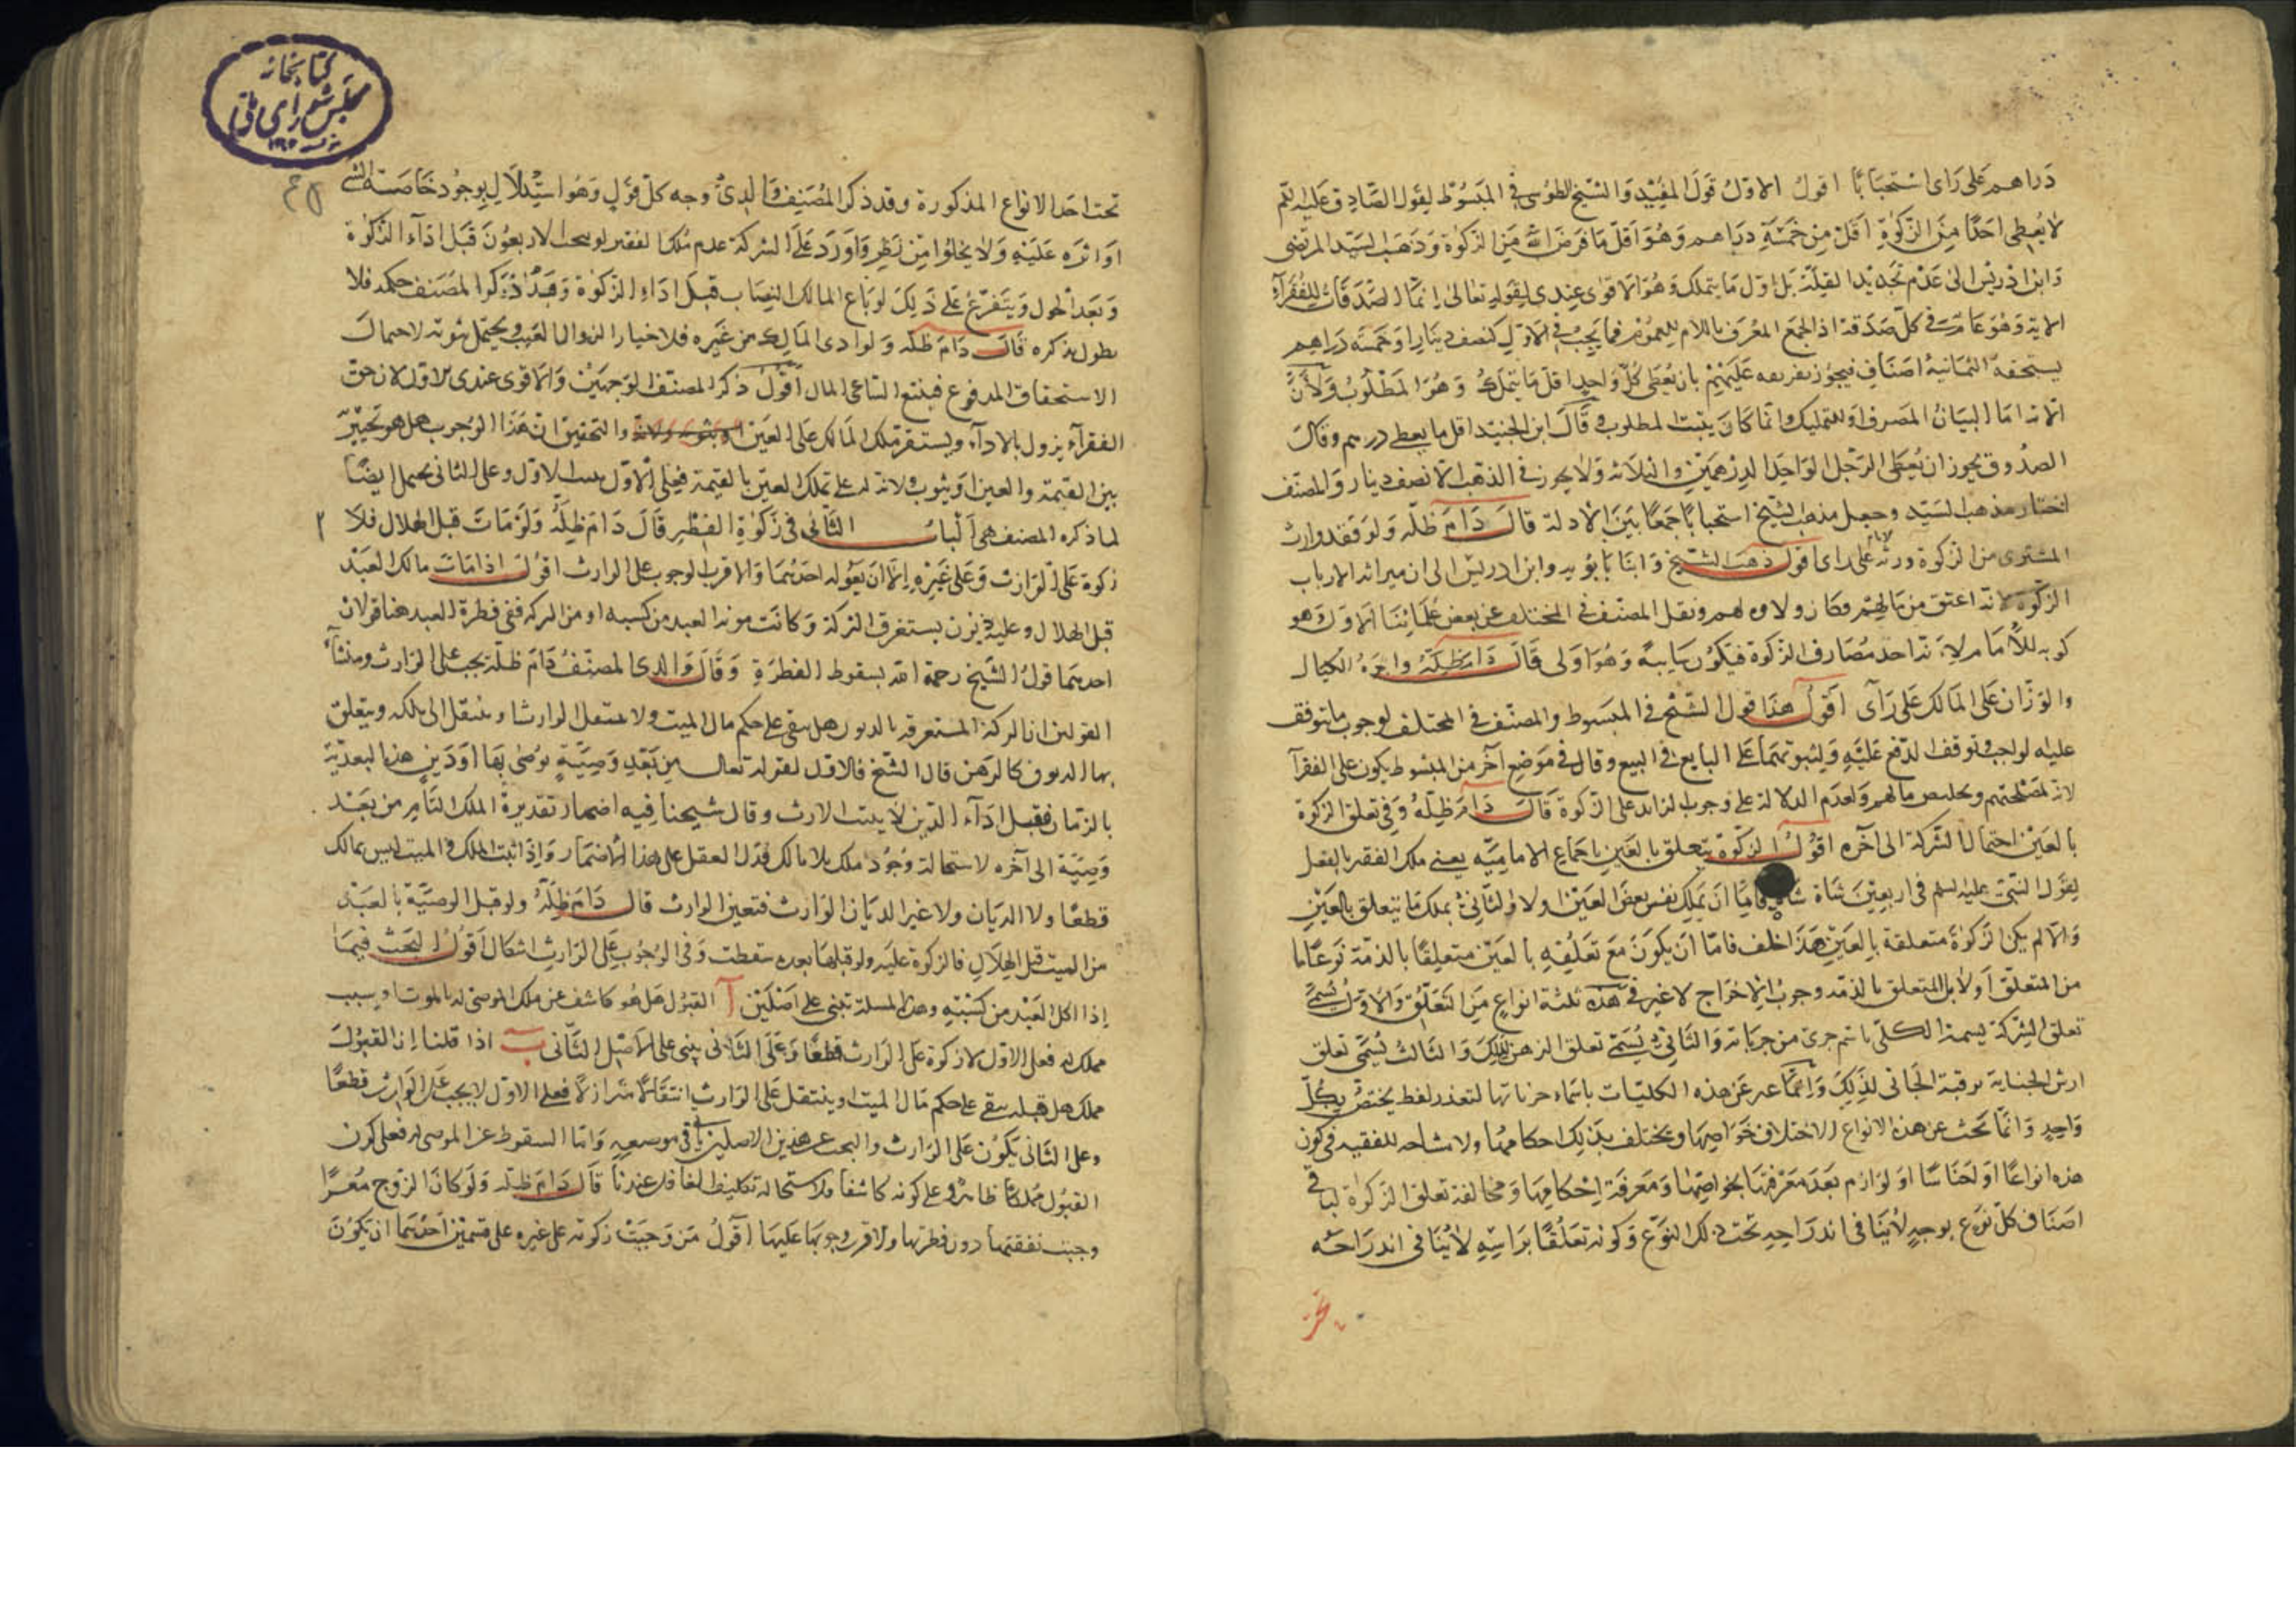 دراهم على راى استحبابا اقول الاول قول المفيد والشيخ الطوسى فى المبسوط لقول الصادق عليه السلم
لا يعطى احدا من الزكوة اقل من خمسة دراهم وهو اقل ما فرض الله من الزكوة وذهب السيد المرتضى
وابن ادريس الى عدم تحديد القلة بل اول ما يتملك وهو الاقوى عندى لقوله تعالى انما الصدقات للفقرآء
الاية وهو عام فى كل صدقة اذ الجمع المعرف باللام للعموم فما يجب فى الاول كنصف دينار او خمسة دراهم
يستحقه الثمانية اصناف فيجوز تفريقه عليهم بان يعطى كل واحد اقل ما يتملك وهو المطلوب ولان
الاية اما لبيان المصرف او للتمليك وانما كان يثبت المطلوب قال ابن الجنيد اقل ما يعطى درهم وقال
الصدوق يجوز ان يعطى الرجل الواحد الدرهمين والثلاثة ولا يجوز فى الذهب الا نصف دينار والمصنف
اختار مذهب السيد وجعل مذهب الشيخ استحبابا جمعا بين الادلة قال دام ظله ولو فقد وارث
المشترى من الزكوة ورثه الامام على راى اقول ذهب الشيخ وابنا بابويه وابن ادريس الى ان ميراثه لارباب
الزكوة لانه اعتق من مالهم فكان ولاوه لهم ونقل المصنف فى المختلف عن بعض علمائنا الاول وهو
كونه للامام لانه احد مصارف الزكوة فيكون سايبة وهو اولى قال دام ظله واجرة الكيال
والوزان على المالك على رآى اقول هذا قول الشيخ فى المبسوط والمصنف فى المختلف لوجوب ما يتوقف
عليه الواجب وتوقف الدفع عليه ولثبوتهما على البايع فى البيع وقال فى موضع آخر من المبسوط يكون على الفقرآ
لانه لمصلحتهم وتخليص مالهم ولعدم الدلالة على وجوب الزايد على الزكوة قال دام ظله وفى تعلق الزكوة
بالعين احتمال الشركة الى آخره اقول الزكوة تتعلق بالعين باجماع الامامية يعنى ملك الفقير بالفعل
لقول النبى عليه السلم فى اربعين شاة شاة فاما ان يملك نفس بعض العين اولا والثانى يملك ما يتعلق بالعين
والا لم يكن الزكوة متعلقة بالعين هذا خلف فاما ان يكون مع تعلقه بالعين متعلقا بالذمة نوعا ما
من المتعلق اولا بل المتعلق بالذمة وجوب الاخراج لا غير فهذه ثلثة انواع من التعلق والاول يسمى
تعلق الشركة تسمية للكلى باسم جزئى من جزياته والثانى يسمى تعلق الرهن لذلك والثالث يسمى تعلق
ارش الجناية برقبة الجانى لذلك وانما عبر عن هذه الكليات باسماء جزئياتها لتعذر لفظ يختص بكل
واحد وانما بحث عن هذه الانواع لاختلاف خواصها ويختلف بذلك احكامها ولا مشاحة للفقيه فى كون
هذه انواعا او اجناسا او لوازم بعد معرفتها بخواصها ومعرفة احكامها ومخالفة تعلق الزكوة لباقى
اصناف كل نوع بوجه لا ينافى اندراجه تحت ذلك النوع وكونه تعلقا براسه لا ينافى اندراجه
تحت
كتابخانه
مجلس شوراى ملى
تحت احد الانواع المذكورة وقد ذكر المصنف والدى وجه كل قول وهو استدلال بوجود خاصة الشئ
او اثره عليه ولا يخلوا من نظر واورد على الشركة عدم ملك الفقير لو نتجت الاربعون قبل ادآء الزكوة
وبعد الحول ويتفرع على ذلك لو باع المالك النصاب قبل اداء الزكوة وهذا ذكر المصنف حكمه فلا
نطول بذكره قال دام ظله ولو ادى المالك من غيره فلا خيار لزوال العيب ويحتمل ثبوته لاحتمال
الاستحقاق المدفوع فيتبع الساعى المال اقول ذكر المصنف الوجهين والاقوى عندى الاول لان حق
الفقرآء يزول بالادآء ويستقر ملك المالك على العين والتحقيق ان هذا الوجوب هل هو تخيير
بين القيمة والعين او ثبوت ولاية له على تملك العين بالقيمة فعلى الاول يثبت الاول وعلى الثانى يحتمل ايضا
لما ذكره المصنف هى الباب الثانى فى زكوة الفطر قال دام ظله ولو مات قبل الهلال فلا
زكوة على الوارث وعلى غيره الا ان يعوله احدهما والاقرب الوجوب على الوارث اقول اذا مات مالك العبد
قبل الهلال وعليه دين يستغرق التركة وكانت مونة العبد من كسبه او من التركة ففى فطرة العبد هنا قولان
احدهما قول الشيخ رحمه الله بسقوط الفطرة وقال والدى المصنف دام ظله يجب على الوارث ومنشاء
القولين ان التركة المستغرقة بالديون هل تبقى على حكم مال الميت ولا تنتقل الى الوارث او ينتقل الى ملكه ويتعلق
بها الديون كالرهن قال الشيخ فالاول لقوله تعالى من بعد وصية يوصى بها او دين هذا لبعدية
بالزمان فقبل ادآء الدين لا يثبت الارث وقال شيخنا فيه اضمار تقديره الملك التام من بعد
وصية الى آخره لاستحالة وجود ملك بلا مالك فدل العقل على هذا الاضمار واذا ثبت الملك فالميت ليس بمالك
قطعا ولا الديان ولا غير الديان الوارث فتعين الوارث قال دام ظله ولو قبل الوصية بالعبد
من الميت قبل الهلال فالزكوة عليه ولو قبلها بعده سقطت وفى الوجوب على الوارث اشكال اقول البحث فيما
اذا اكل العبد من كسبه وهذه المسلة تبنى على اصلين آ القبول هل هو كاشف عن ملك الموصى له بالموت او سبب
مملك له فعلى الاول لا زكوة على الوارث قطعا وعلى الثانى يبنى على الاصل الثانى ب اذا قلنا ان القبول
مملك هل قبله يبقى على حكم مال الميت او ينتقل الى الوارث انتقالا متزلزلا فعلى الاول لا يجب على الوارث قطعا
وعلى الثانى يكون على الوارث والبحث عن هذين الاصلين ياتى فى موضعه واما السقوط عن الموصى له فعلى كون
القبول مملكا ظاهر وعلى كونه كاشفا فلاستحالة تكليف الغافل عندنا قال دام ظله ولو كان الزوج معسرا
وجبت نفقتها دون فطرتها والاقرب وجوبها عليها اقول من وجبت زكوته على غيره على قسمين احدهما ان يكون